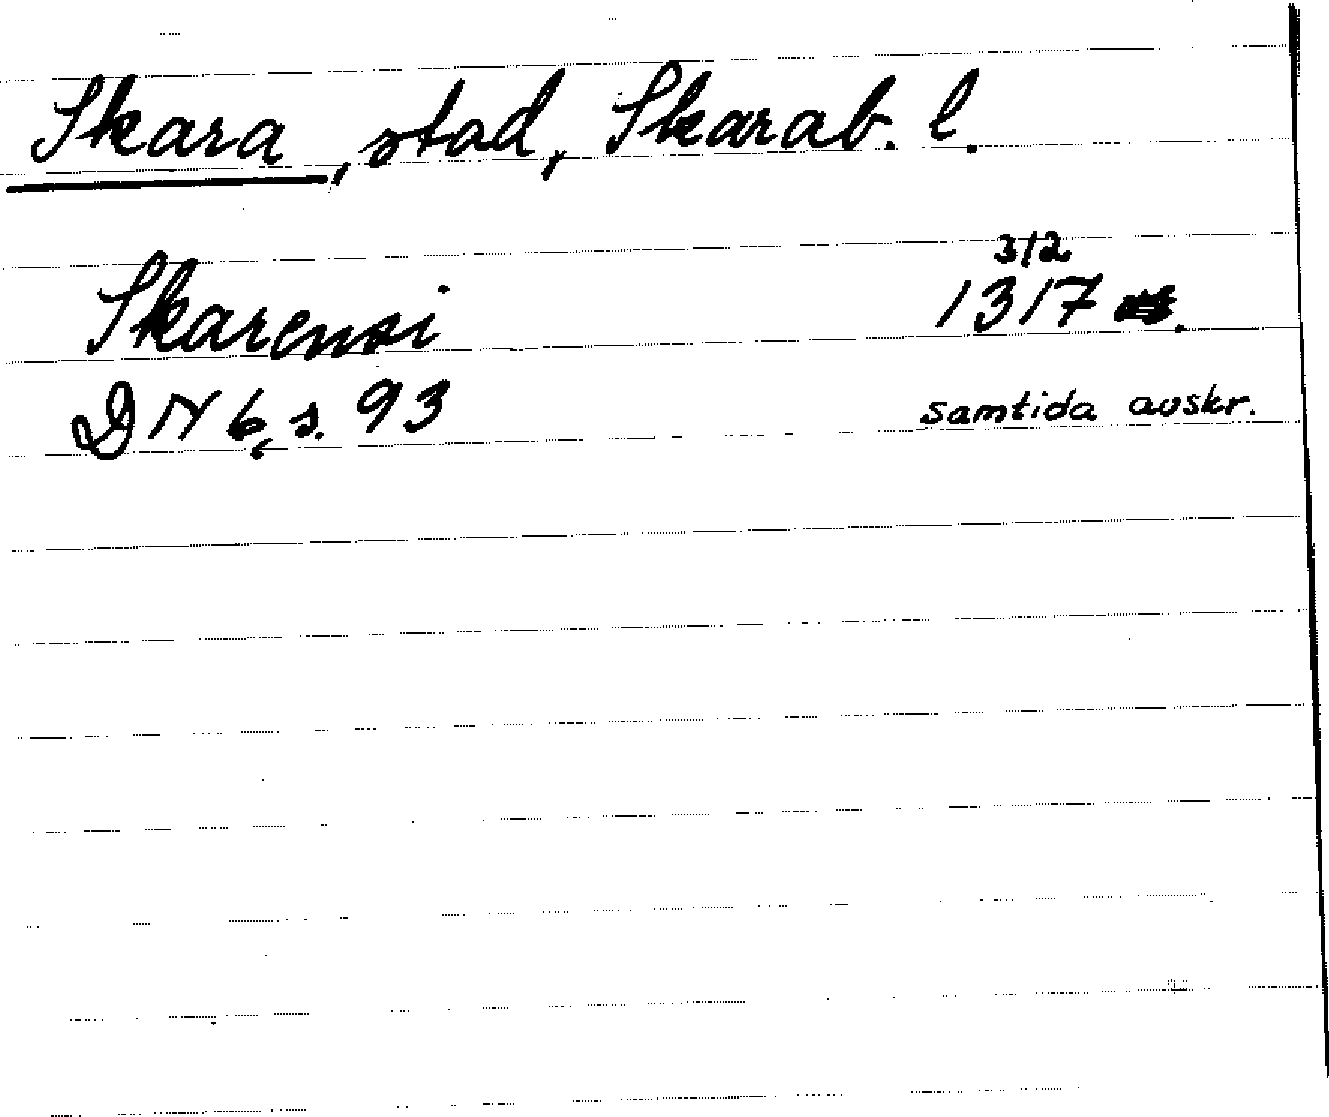 Skara, stad, Skarab. l.
3/2
Skarensi 1317
DN 6, s. 93 samtida avskr.